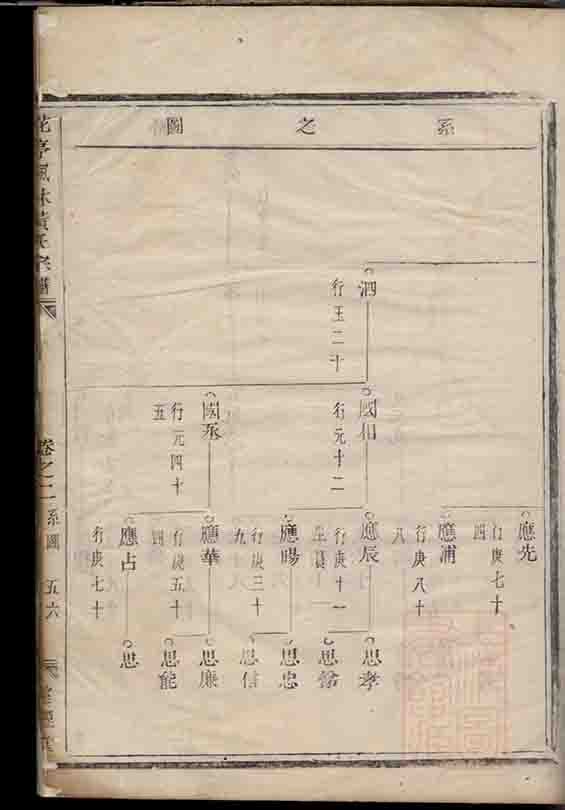 系之圖
泗
行玉二十
國相
行元十二
國丞
行元四十五
應先
行庚七十四
應浦
行庚八十八
應辰
行庚十一
應暘
行庚三十九
應華
行庚五十四
應占
行庚七十
思孝
思忠
思信
思廉
思能
思
卷之二
系圖
五六